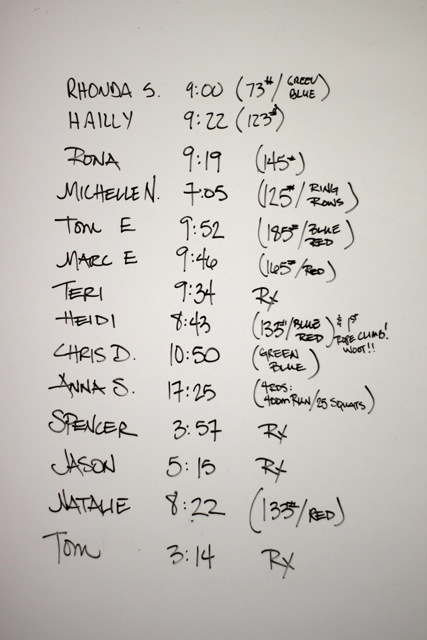 RHONDA S. 9:00 (73#/GREEN BLUE)
HAILLY 9:22 (123#)
RONA 9:19 (145#)
MICHELLE N. 7:05 (125#/RING ROWS)
TOM E 9:52 (185#/BLUE RED)
MARC E 9:46 (165#/RED)
TERI 9:34 Rx
HEIDI 8:43 (133#/BLUE RED) & 1ST ROPE CLIMB! WOOT!!
CHRIS D. 10:50 (GREEN BLUE)
ANNA S. 17:25 (4RDS: 400M RUN/25 SQUATS)
SPENCER 3:57 Rx
JASON 5:15 Rx
NATALIE 8:22 (133#/RED)
Tom 3:14 Rx